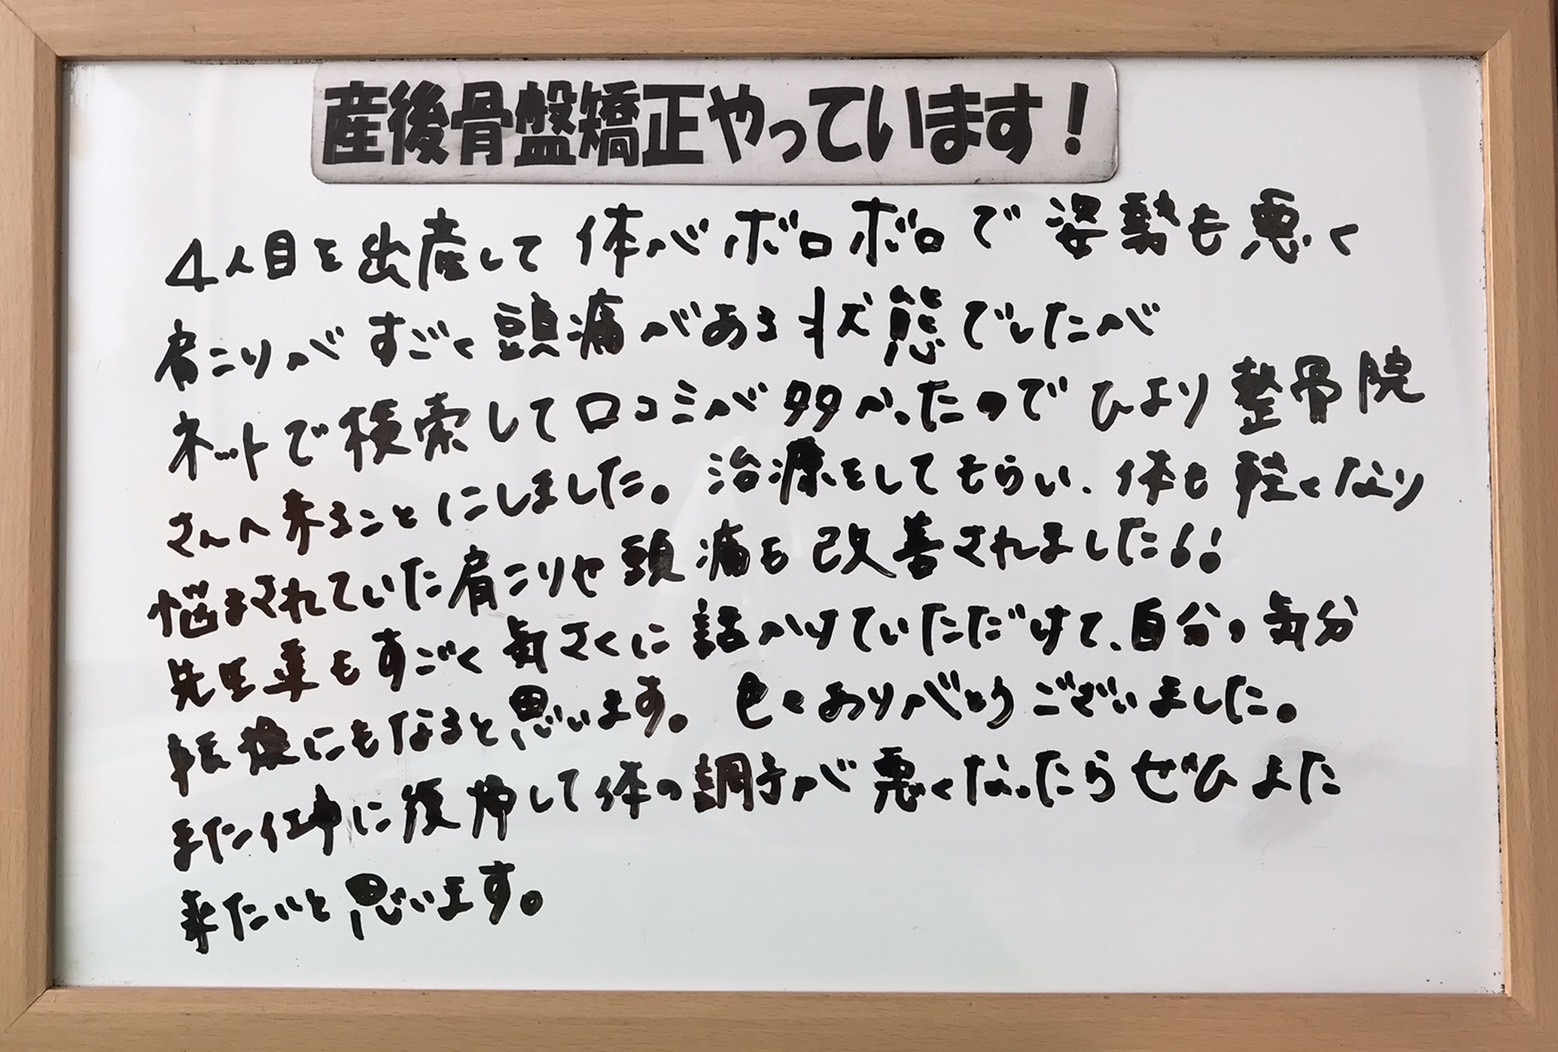 産後骨盤矯正やっています！
4人目を出産して 体が ボロボロで 姿勢も悪く
肩こりが すごく 頭痛がある 状態でしたが
ネットで検索して口コミが多かったので ひより整骨院
さんへ来ることにしました。治療をしてもらい、体も軽くなり
悩まされていた肩こりや頭痛も改善されました!!
先生達もすごく気さくに話かけていただけて、自分の気分
転換にもなると思います。色々ありがとうございました。
また仕事に復帰して体の調子が悪くなったらぜひまた
来たいと思います。